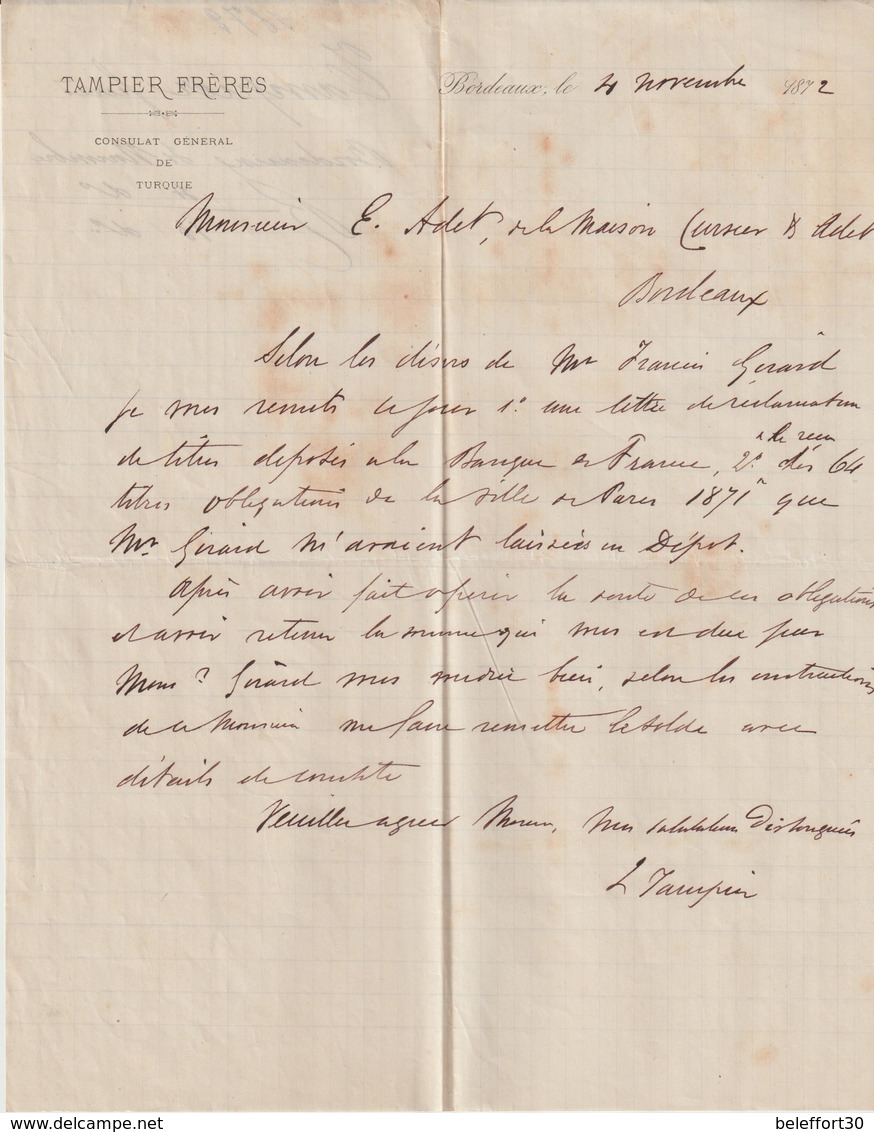 TAMPIER FRÈRES
CONSULAT GÉNÉRAL
DE
TURQUIE
Bordeaux, le 4 novembre 1872
Monsieur E. Adet, de la Maison Cursier & Adet
Bordeaux
Selon les désirs de Mr Francis Gérard
je vous remets ce jour 1° une lettre de réclamation
de titres déposés à la Banque de France, 2° le reçu des 64
titres obligations de la Ville de Paris 1871 que
Mr Gérard m'avaient laissées en Dépôt.
Après avoir fait opérer la vente de ces obligations
et avoir retenu la somme qui vous est due par
Mons. Gérard vous voudrez bien, selon les instructions
de ce Monsieur me faire remettre le solde avec
détails de compte
Veuillez agréer Monsieur, mes salutations Distinguées
L Tampier
delcampe.net
beleffort30